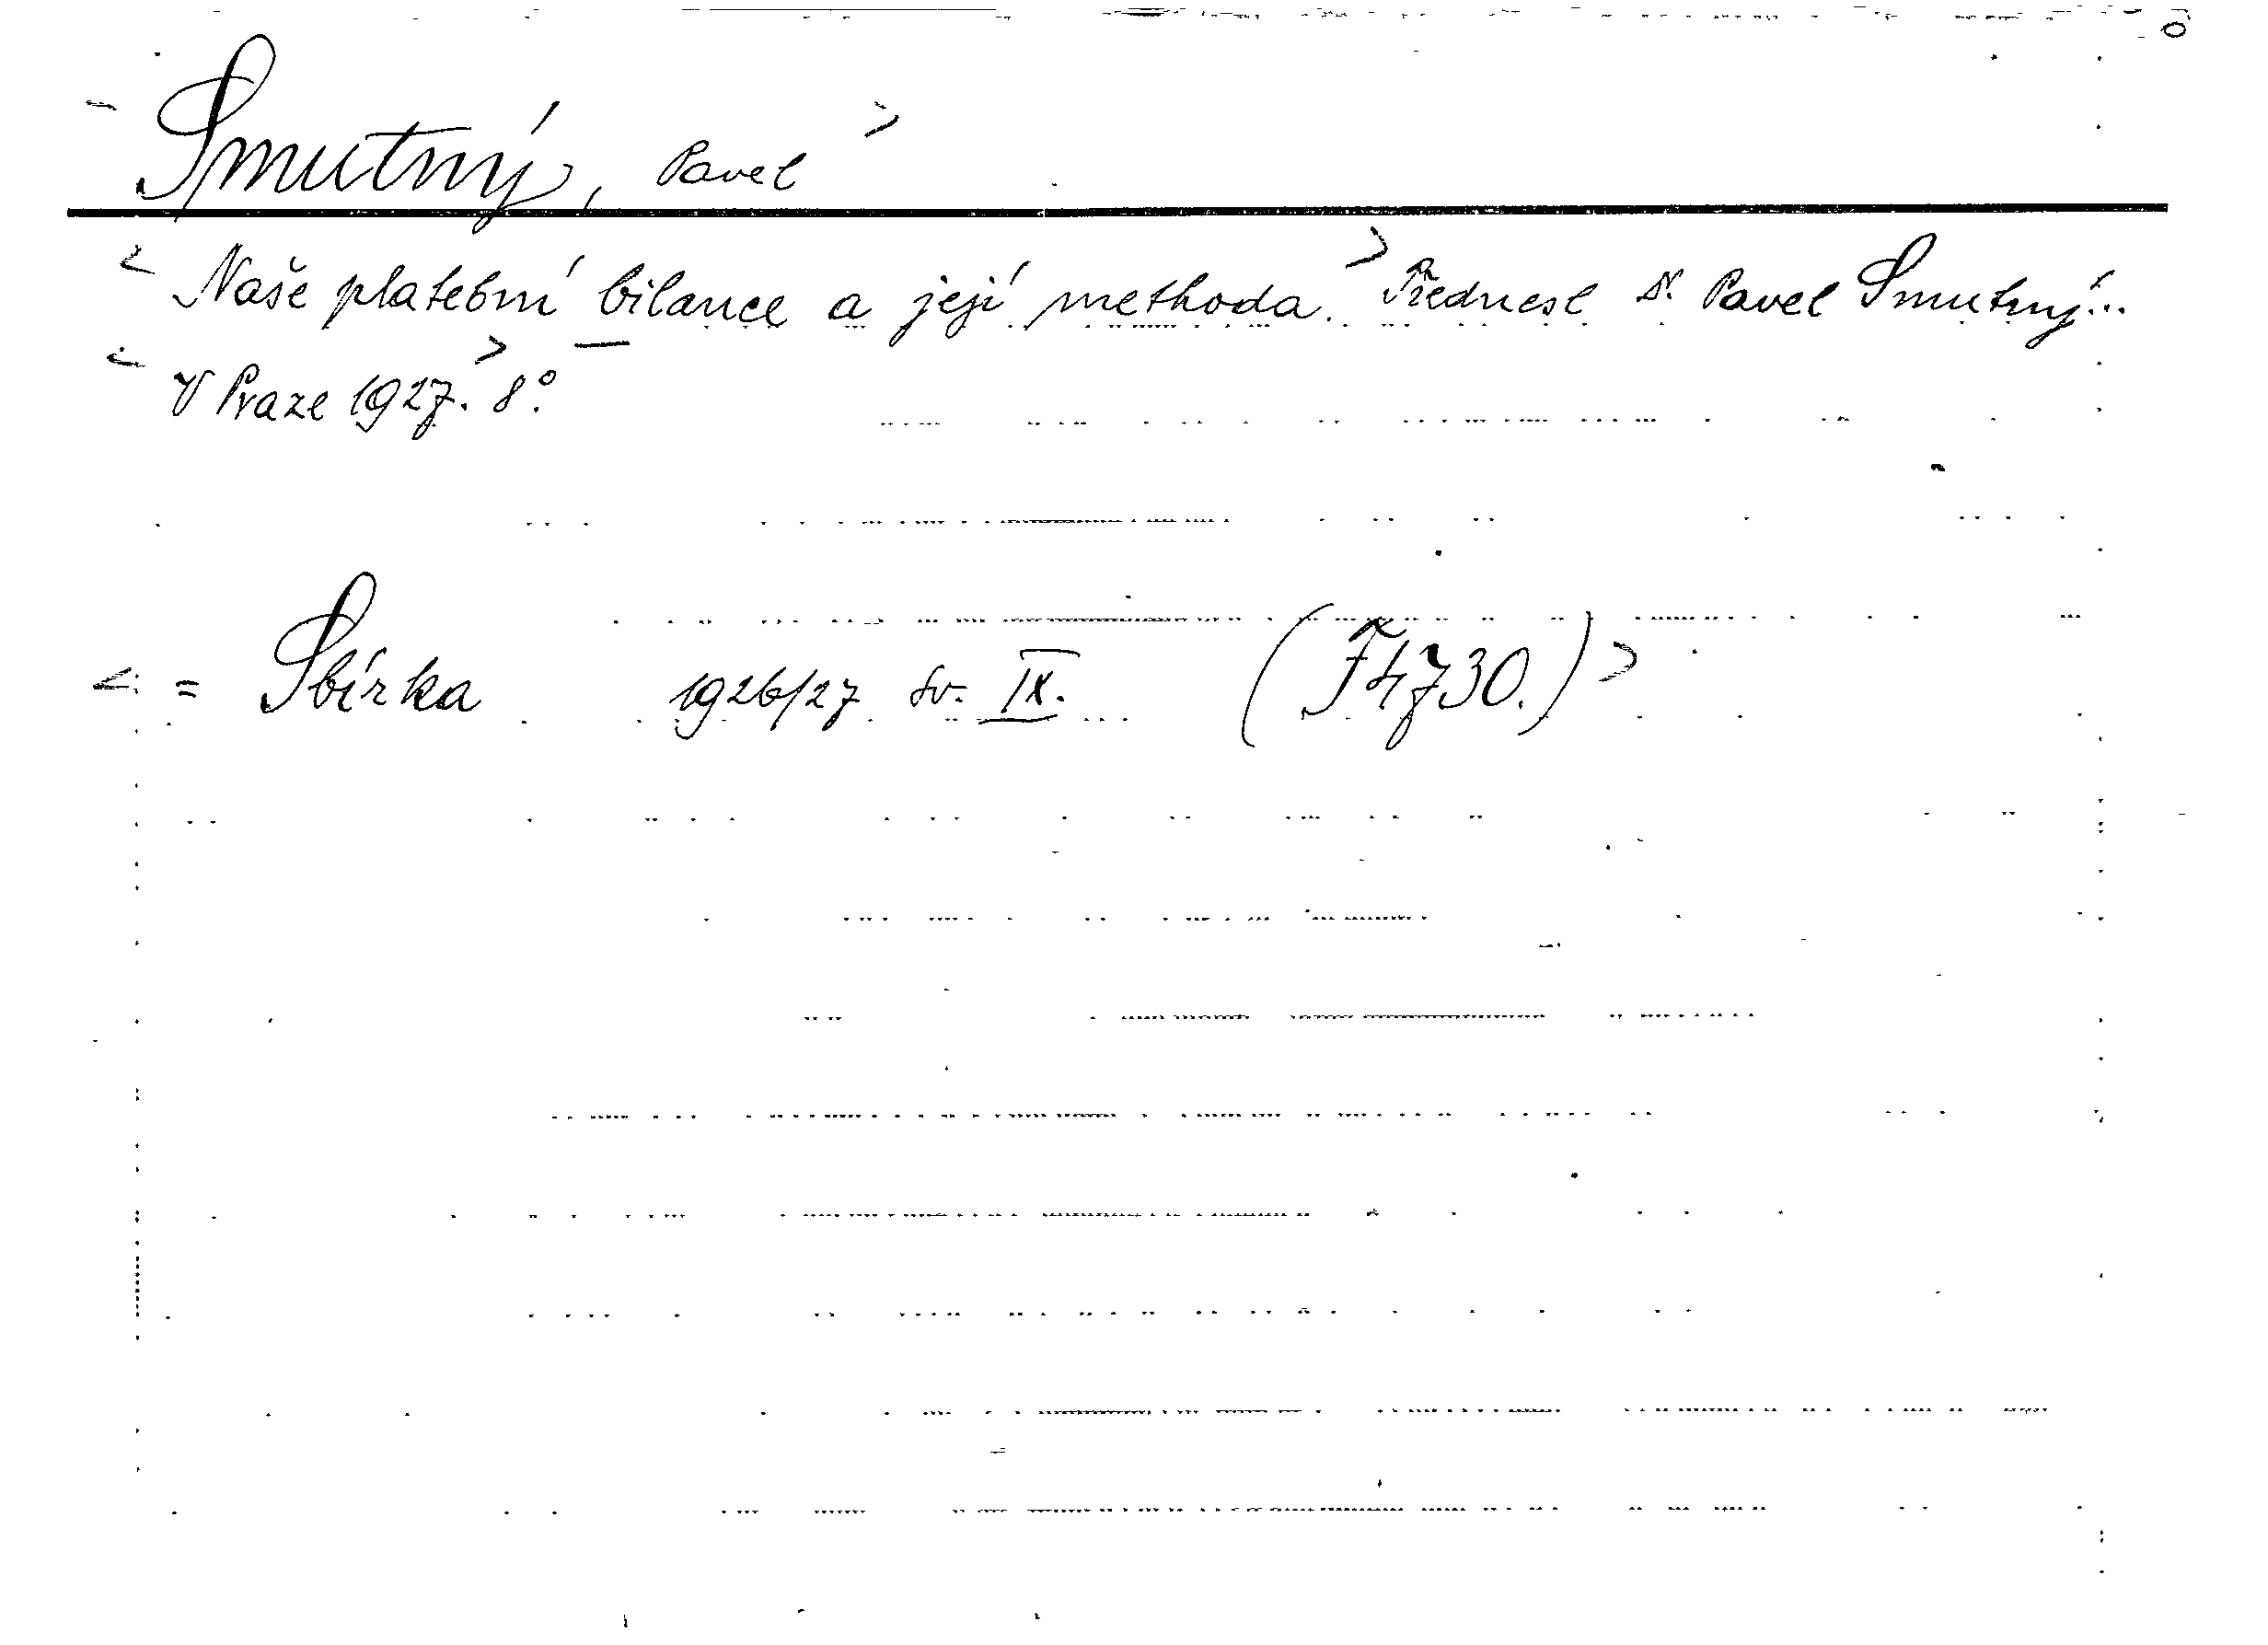 < Smutný, Pavel >
< Naše platební bilance a její methoda. > Přednesl Dr. Pavel Smutný...
< V Praze 1927. > 8°.
< = Sbírka 1926/27 sv. IX. (F4730.) >